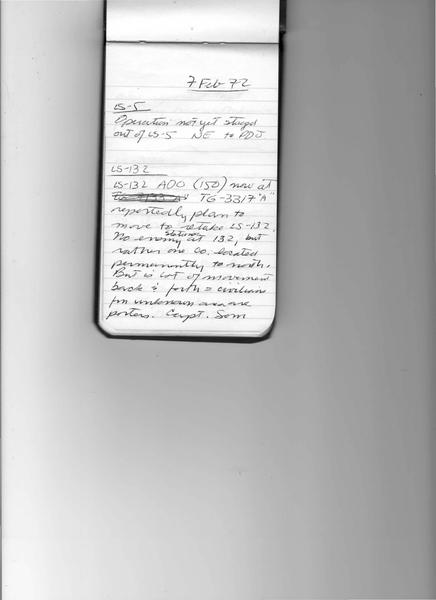 7 Feb 72
LS-5
Operation not yet staged
out of LS-5 NE to PDJ
LS-132
LS-132 ADO (150) now at
TG-3317 "A"
reportedly plan to
move to retake LS-132.
No enemy at 132, but
rather one Co. located
permanently to north.
But is lot of movement
back & forth = civilians
fm unknown area are
porters. Capt. Som